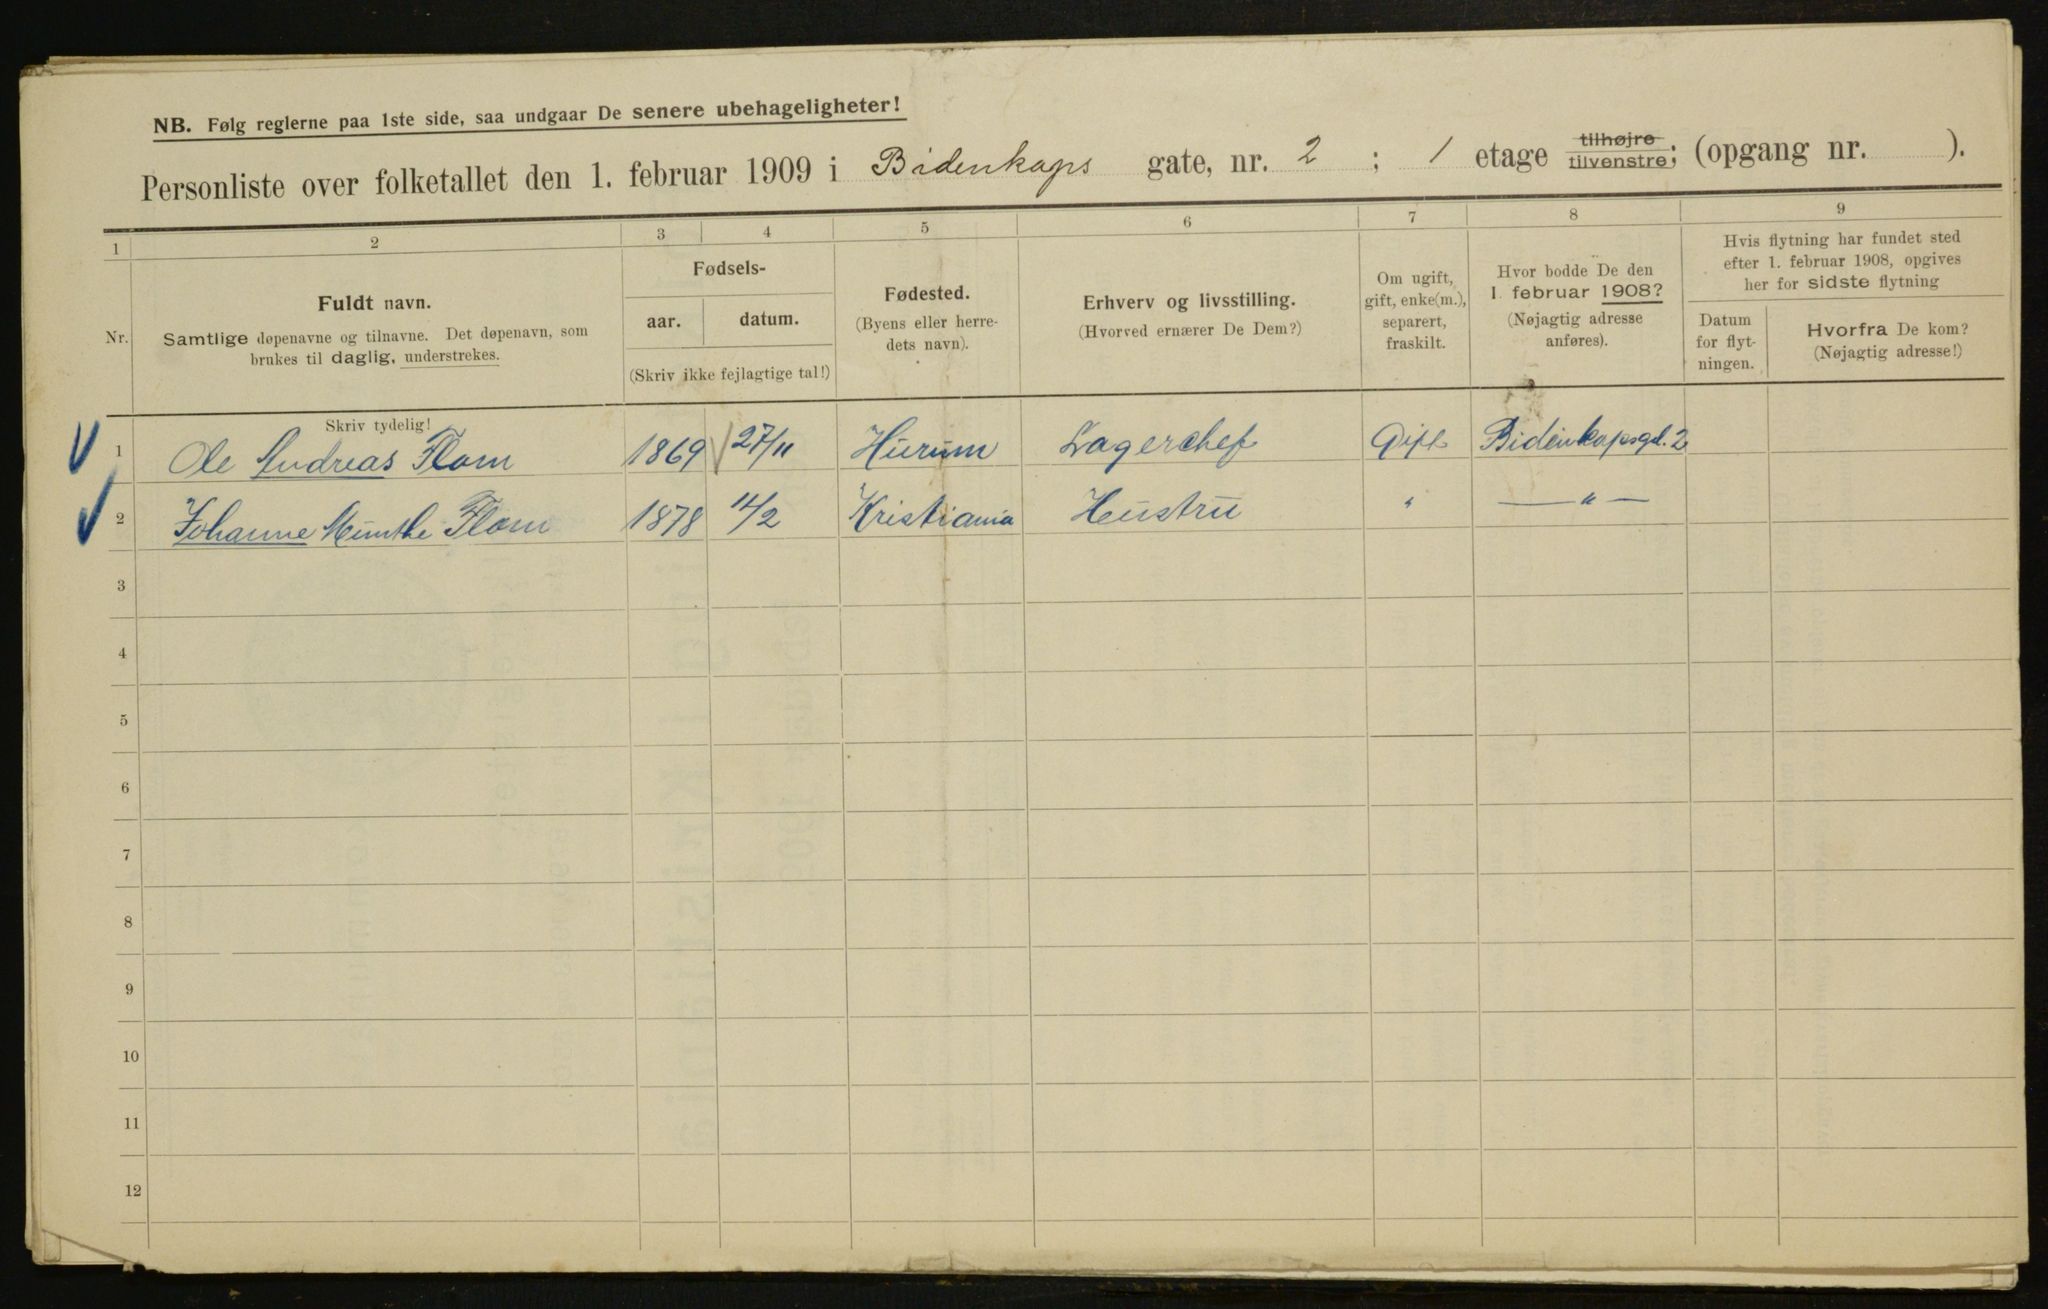 NB. Følg reglerne paa 1ste side, saa undgaar De senere ubehageligheter!
Personliste over folketallet den 1. februar 1909 i Bidenkaps gate, nr. 2 ; 1 etage tilhøjre tilvenstre; (opgang nr. ).
1 2 3 4 5 6 7 8 9
Nr.
Fuldt navn.
Samtlige døpenavne og tilnavne. Det døpenavn, som
brukes til daglig, understrekes.
Fødsels-
aar. datum.
(Skriv ikke fejlagtige tal!)
Fødested.
(Byens eller herre-
dets navn).
Erhverv og livsstilling.
(Hvorved ernærer De Dem?)
Om ugift,
gift, enke(m.),
separert,
fraskilt.
Hvor bodde De den
1. februar 1908?
(Nøjagtig adresse
anføres).
Hvis flytning har fundet sted
efter 1. februar 1908, opgives
her for sidste flytning
Datum
for flyt-
ningen.
Hvorfra De kom?
(Nøjagtig adresse!)
Skriv tydelig!
1 Ole Andreas Flom 1869 27/11 Hurum Lagerchef Gift Bidenkapsgd. 2
2 Johanne Munthe Flom 1878 14/2 Kristiania Hustru " — " —
3
4
5
6
7
8
9
10
11
12